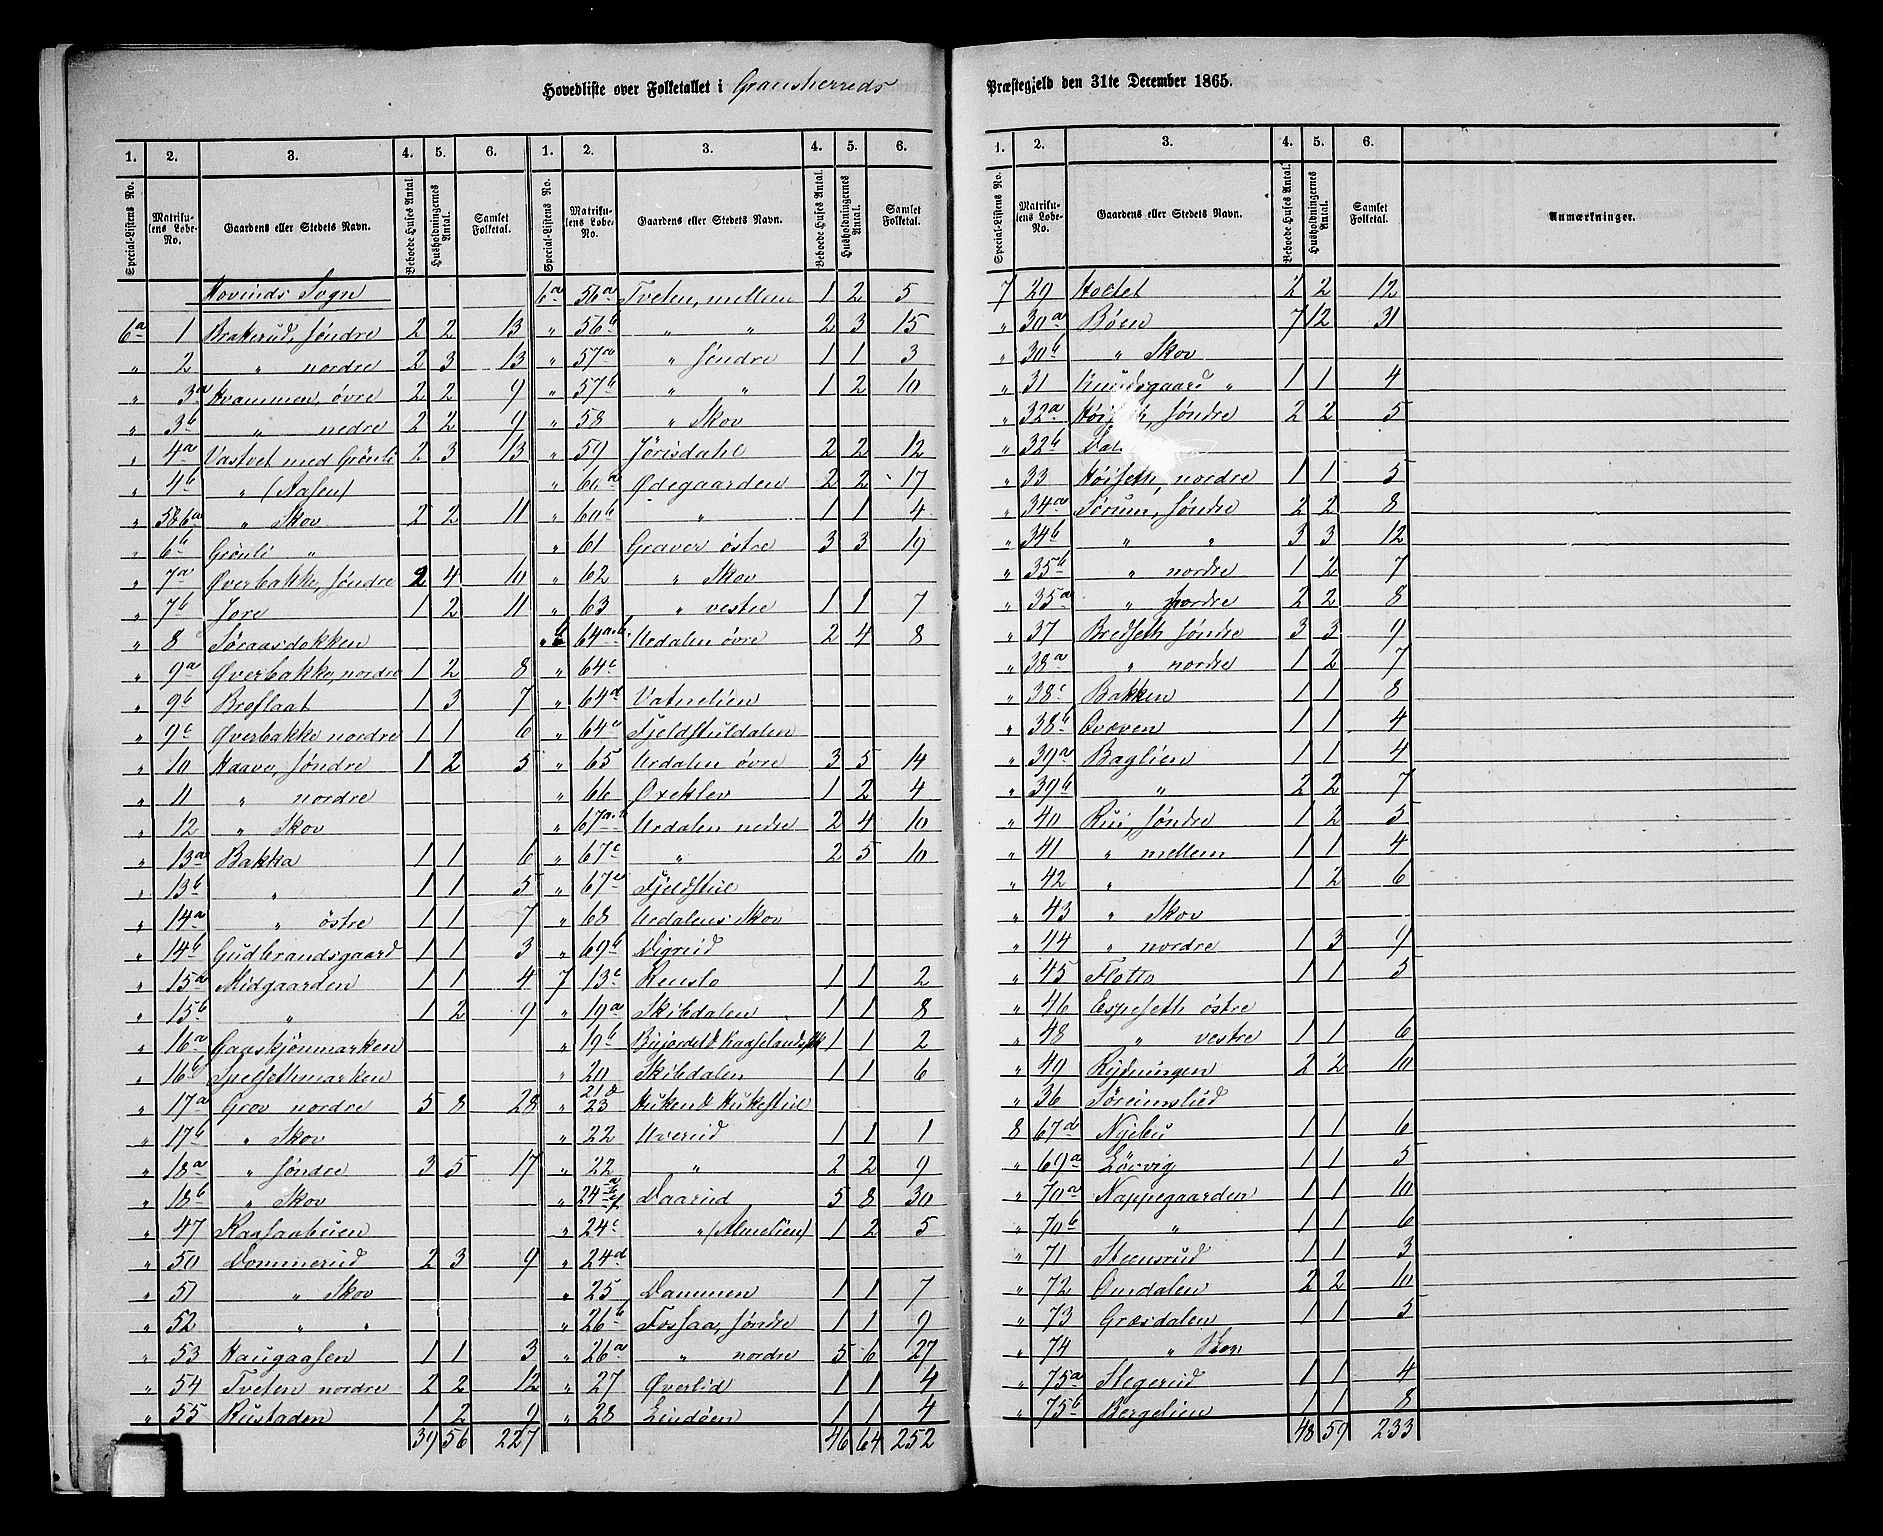 Hovedliste over Folketallet i Gransherreds Præstegjeld den 31te December 1865.
1. 2. 3. 4. 5. 6. 1. 2. 3. 4. 5. 6.
Special-Listens No. Matrikulens Lobe-No. Gaardens eller Stedets Navn. Beboede Huses Antal. Husholdningernes Antal. Samlet Folketal. Special-Listens No. Matrikulens Lobe-No. Gaardens eller Stedets Navn. Beboede Huses Antal. Husholdningernes Antal. Samlet Folketal.
Hovinds Sogn
6a 1 Brakerud, søndre 2 2 13
" 2 " nordre 2 3 13
" 3a Hvammen, øvre 2 2 9
" 3b " nedre 2 2 9
" 4a Vastvet med Grönli 2 3 13
" 4b " (Aasen)
" 5&6a " Skov 2 2 11
" 6b Grönli "
" 7a Øverbakke, søndre 2 4 10
" 7b Jore 1 2 11
" 8 Søraasdokken
" 9a Øverbakke, nordre 1 2 8
" 9b Broflaat 1 3 7
" 9c Øverbakke nordre 1 1 6
" 10 Haave, søndre 1 2 5
" 11 " nordre
" 12 " Skov
" 13a Bakka 1 1 6
" 13b " 1 1 5
" 14a " östre 1 1 7
" 14b Gudbrandsgaard 1 1 3
" 15a Midgaarden 1 1 4
" 15b " 1 2 9
" 16a Gaaskjönmarken
" 16b Spelsethmarken
" 17a Grov nordre 5 8 28
" 17b " Skov
" 18a " søndre 3 5 17
" 18b " Skov
" 47 Kaasaabuen
" 50 Dommerud 2 3 9
" 51 " Skov
" 52 " "
" 53 Haugaasen 1 1 3
" 54 Tveten nordre 2 2 12
" 55 Rustaden 1 2 9
39 56 227
6a 56a Tveten, mellem 1 2 5
" 56b " " 2 3 15
" 57a " søndre 1 1 3
" 57b " " 1 2 10
" 58 " Skov
" 59 Jörisdahl 2 2 12
" 60a Ødegaarden 2 2 17
" 60b " 1 1 4
" 61 Graver östre 3 3 19
" 62 " Skov
" 63 " vestre 1 1 7
" 64a.b. Urdalen øvre 2 4 8
" 64c
" 64d Vatnelien
" 64e Fjeldstuldalen
" 65 Urdalen øvre 3 5 14
" 66 Oxeklev 1 2 4
" 67a.b Urdalen nedre 2 4 10
" 67c " 2 5 10
" 67e Fjeldstul
" 68 Urdalens Skov
" 69b Digrud
7 13c Rensto 1 1 2
" 19a Skibdalen 1 1 8
" 19b 1 1 2
" 20 Skibdalen 1 1 6
" 21& 23 Huken & Hukestul
" 22 Uverud 1 1 1
" 22 " 2 2 9
" 24 Daarud 5 8 30
" 24c " (Almelien) 1 2 5
" 24d
" 25 Dammen 1 1 7
" 26b Fossaa, søndre 1 1 9
" 26a " nordre 5 6 27
" 27 Øverlid 1 1 4
" 28 Lindøen 1 1 4
46 64 252
1. 2. 3. 4. 5. 6.
Special-Listens No. Matrikulens Lobe-No. Gaardens eller Stedets Navn. Beboede Huses Antal. Husholdningernes Antal. Samlet Folketal. Anmærkninger.
7 29 Holtet 2 2 12
" 30a Bøen 7 12 31
" 30b " Skov
" 31 Knudsgaard " 1 1 4
" 32a søndre 2 2 5
" 32b
" 33 Høiseth, nordre 1 1 5
" 34a Sörum, søndre 2 2 8
" 34b " " 3 3 12
" 35b " nordre 1 2 7
" 35a " nordre 2 2 8
" 37 Bredseth søndre 3 3 9
" 38a " nordre 1 2 7
" 38c Bakken 1 1 8
" 38b Ovæven 1 1 4
" 39a Baglien 1 1 4
" 39b " 2 2 7
" 40 Rui, søndre 1 2 5
" 41 " mellem 1 1 4
" 42 " 1 2 6
" 43 " Skov
" 44 " nordre 1 3 9
" 45 Flotto 1 1 5
" 46 Espeseth östre
" 48 " vestre 1 1 6
" 49 Rydningen 2 2 10
" 36 Søreimslied
8 67d Nyebu 1 1 6
" 69a Lövvig 1 1 5
" 70a Nappegaarden 1 1 10
" 70b " 1 1 6
" 71 Steensrud 1 1 3
" 72 Omdalen 2 2 10
" 73 Græsdalen 1 1 5
" 74 " Skov
" 75a Stegerud 1 1 4
" 75b Bergelien 1 1 8
48 59 233